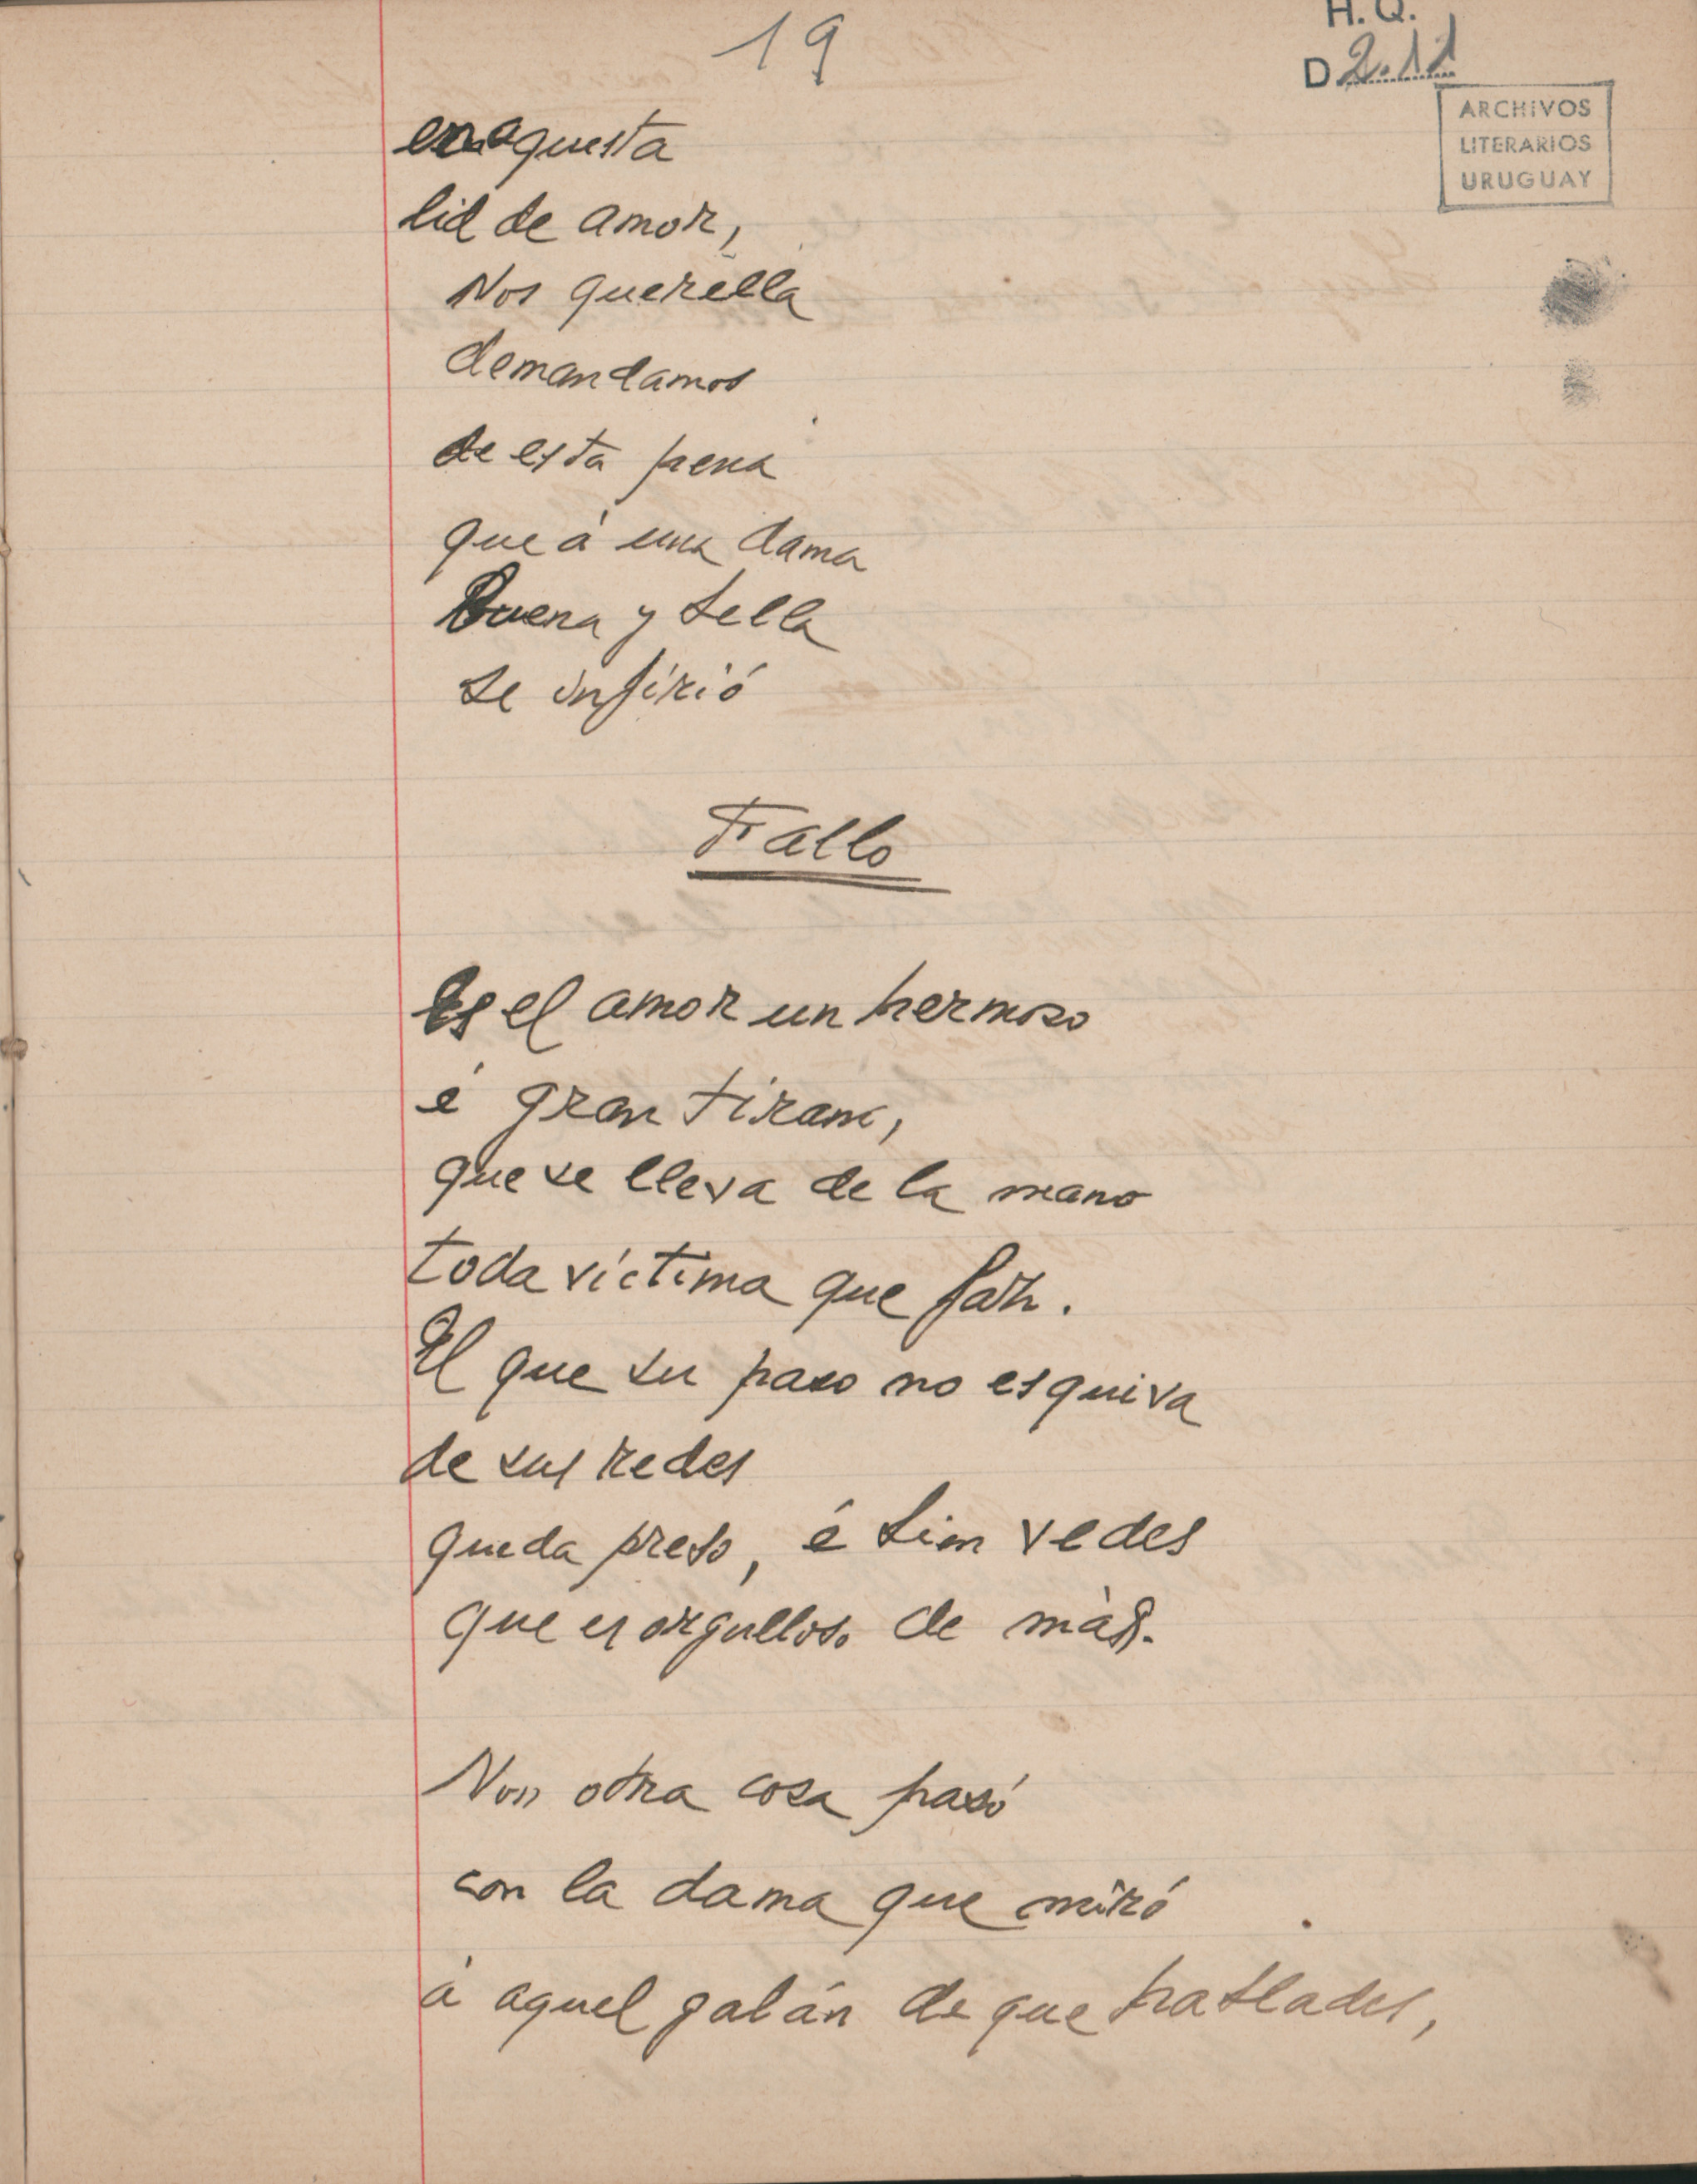 19
H. Q.
D 2.11
ARCHIVOS
LITERARIOS
URUGUAY
en aquesta
lid de amor,
Nos querella
demandamos
de esta pena
que á una dama
Buena y bella
se infirió
Fallo
Es el amor un hermoso
é gran tirano,
que se lleva de la mano
toda víctima que faz.
El que su paso no esquiva
de sus redes
queda preso, é bien vedes
que es orgulloso de más.
Non otra cosa pasó
con la dama que miró
á aquel galán de que hablades,